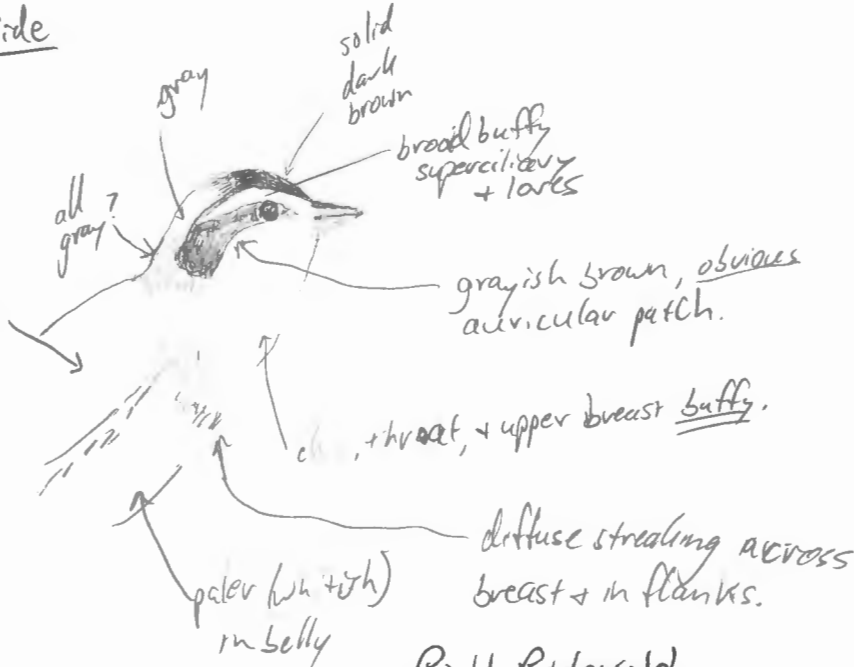 solid
dark
brown
gray
broad buffy
superciliary
+ lores
all
gray?
grayish brown, obvious
auricular patch.
, throat, + upper breast buffy.
diffuse streaking across
breast + in flanks.
paler (whitish)
in belly